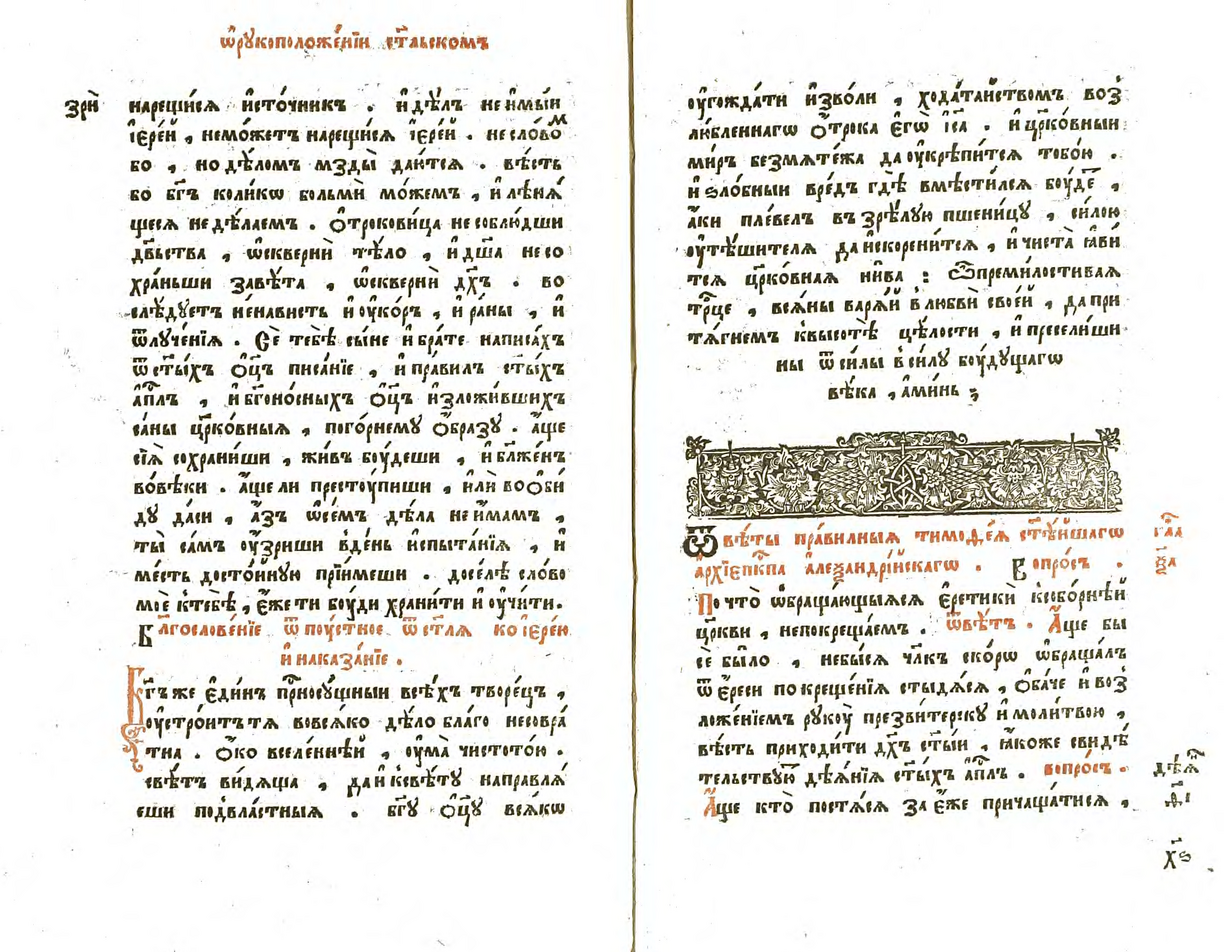 ѡ҆рꙋкоположе́нїи ст҃льскомъ
зрѝ
нарещи́сѧ и҆сто́чникъ . и҆дѣ́лъ неи҆мы́и
і҆ере́й , немо́жетъ нарещи́сѧ і҆ере́й . несло́вомъ
бо , нодѣ́ломъ мзды̀ даю́тсѧ . вѣ́сть
бо бг҃ъ коли́кѡ бо́льми мо́жемъ , и҆лѣнѧ́
щесѧ недѣ́лаемъ . Ѻ҆трокови́ца несоблю́дши
дв҃ьства , ѡ҆скверни̑ тѣ́ло , и҆дш҃а несо
хра́ньши завѣ́та , ѡ҆скверни̑ дх҃ъ . во
слѣ́дꙋетъ не́нависть и҆оу҆ко́ръ , и҆ра́ны , и҆
ѿлꙋче́нїѧ . Се́ тебѣ̀ сы́не и҆бра́те написа́хъ
ѿст҃ы́хъ Ѻ҆ц҃ъ писа́нїе , и҆пра́вилъ ст҃ы́хъ
а҆пⷭ҇лъ , и҆бг҃оно́сныхъ Ѻ҆ц҃ъ и҆зложи́вшихъ
са́ны цр҃ко́вныѧ , пого́рнемꙋ Ѻ҆бразꙋ . а҆́ще
сїѧ̀ сохрани́ши , жи́въ боу́деши , и҆бл҃же́нъ
во́вѣки . а҆́щели престоу́пиши , и҆лѝ воѺби
дꙋ да́си , а҆́зъ ѡ҆се́мъ дѣ́ла неи҆́мамъ ,
ты̀ са́мъ оу҆́зриши в̾де́нь и҆спыта́нїѧ , и҆
ме́сть досто́йнꙋю прїи́меши . досе́лѣ сло́во
моѐ ктебѣ̀ , є҆́жети боу́ди храни́ти и҆оу҆чи́ти .
Бл҃гослове́нїе ѿпоу́стное ѿст҃лѧ коі҆ере́ю
и҆наказа́нїе .
Бг҃ъже є҆ди́нъ прⷭ҇носꙋ́щныи всѣ́хъ творе́цъ ,
оу҆стро́итътѧ вовсѧ́ко дѣ́ло бла́го несовра́
тна . Ѻ҆́ко вселе́ннѣй , оу҆ма̀ чистото́ю .
свѣ́тъ ви́дѧща , даи҆ ксвѣ́тꙋ направлѧ́
еши подвла́стныѧ . бг҃ꙋ Ѻ҆ц҃ꙋ всѧ́кѡ
оу҆гожда́ти и҆зво́ли , хода́тайствомъ воз̾
лю́бленнагѡ Ѻ҆́трока є҆гѡ̀ і҆с҃а . и҆цр҃ко́вныи
ми́ръ безмѧте́жа даоу҆крѣпи́тсѧ тобо́ю .
и҆ѕло́бныи вре́дъ гдѣ̀ вмѣсти́лсѧ боу́де ,
а҆́ки пле́велъ взрѣ́лꙋю пшени́цꙋ , си́лою
оу҆тѣ́шителѧ даи҆скорени́тсѧ , и҆чиста̀ ꙗ҆ви́
тсѧ цр҃ко́внаѧ ни́ва : Ѽпреми́лостиваѧ
трⷪ҇це , всѧ́ны варѧ́й влюбвѝ свое́й , дапри
тѧ́гнемъ квысотѣ̀ цѣ́лости , и҆пресели́ши
ны ѿси́лы в̾си́лꙋ боу́дꙋщагѡ
вѣ́ка , а҆ми́нь ;
Ѿвѣ́ты пра́вилныѧ тимоѳе́ѧ ст҃ѣ́йшагѡ
а҆рхїепкⷭ҇па а҆леѯандрі́йскагѡ . Вопро́съ .
По что̀ ѡ҆браща́ющыѧсѧ є҆ретикѝ ксобо́рнѣй
цр҃кви , непокреща́емъ . ѿвѣ́тъ . А҆́ще бы
сѐ бы́ло , небы́сѧ чл҃къ ско́рѡ ѡ҆браща́лъ
ѿе҆́реси покреще́нїѧ стыдѧ́сѧ , Ѻ҆ба́че и҆воз̾
ложе́нїемъ рꙋкоу̀ презви́терскꙋ и҆моли́твою ,
вѣ́сть приходи́ти дх҃ъ ст҃ы́й , ꙗ҆́коже свидѣ́
тельствꙋю дѣѧ́нїѧ ст҃ы́хъ а҆пⷭ҇лъ . вопро́съ .
А҆́ще кто̀ постѧ́сѧ за є҆́же причаща́тисѧ ,
дѣѧ
хѕ